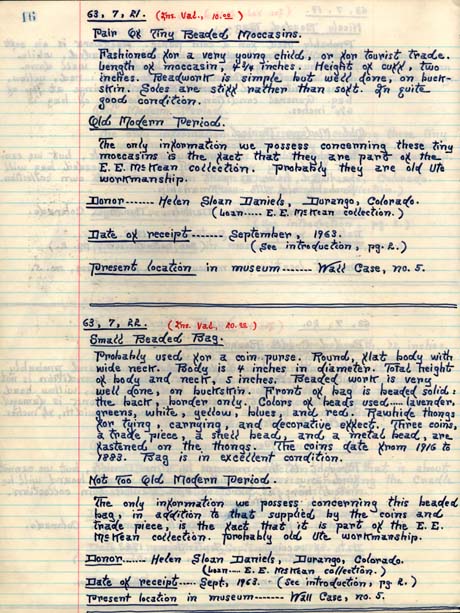 16
63, 7, 21. (Ins. Val., 10.00)
Pair of Tiny Beaded Moccasins.
Fashioned for a very young child, or for tourist trade.
Length of moccasin, 4 3/4 inches. Height of cuff, two
inches. Beadwork is simple but well done, on buck-
skin. Soles are stiff rather than soft. In quite
good condition.
Old Modern Period.
The only information we possess concerning these tiny
moccasins is the fact that they are part of the
E. E. McKean collection. Probably they are old Ute
workmanship.
Donor------- Helen Sloan Daniels, Durango, Colorado.
(Loan---- E. E. McKean collection.)
Date of receipt------- September, 1963.
(See introduction, pg. 2.)
Present location in museum------- Wall Case, no. 5.
63, 7, 22. (Ins. Val., 20.00)
Small Beaded Bag.
Probably used for a coin purse. Round, flat body with
wide neck. Body is 4 inches in diameter. Total height
of body and neck, 5 inches. Beaded work is very
well done, on buckskin. Front of bag is beaded solid:
the back, border only. Colors of beads used---- lavender,
greens, white, yellow, blues, and red. Rawhide thongs
for tying, carrying, and decorative effect. Three coins,
a trade piece, a shell bead, and a metal bead, are
fastened on the thongs. The coins date from 1916 to
1883. Bag is in excellent condition.
Not Too Old Modern Period.
The only information we possess concerning this beaded
bag, in addition to that supplied by the coins and
trade piece, is the fact that it is part of the E. E.
McKean collection. Probably old Ute workmanship.
Donor----- Helen Sloan Daniels, Durango, Colorado.
(Loan---- E. E. McKean collection.)
Date of receipt----- Sept, 1963. (See introduction, pg 2.)
Present location in museum------- Wall Case, no. 5.